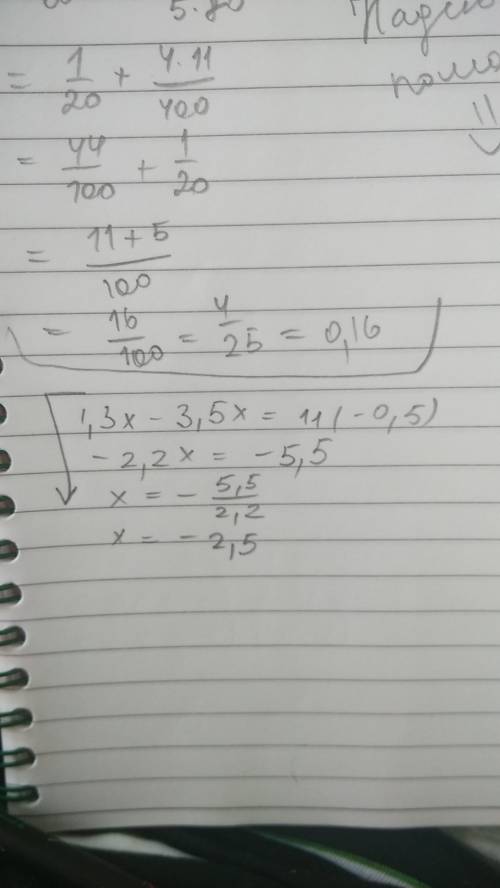 5·80
= 1/20 + 4·11/400
= 44/100 + 1/20
= 11+5/100
= 16/100 = 4/25 = 0,16
1,3x - 3,5x = 11(-0,5)
-2,2x = -5,5
x = - 5,5/2,2
x = - 2,5